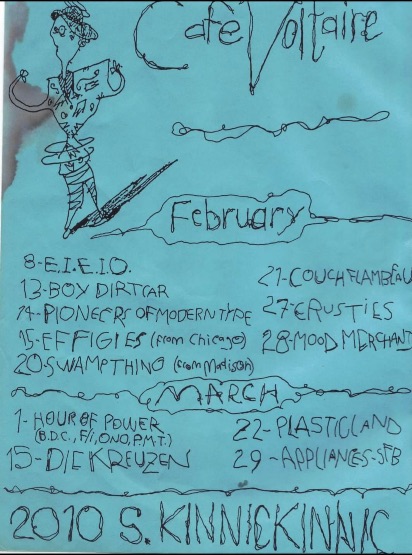 Cafe Voltaire
February
8-E.I.E.I.O.
13-BOY DIRTCAR
14-PIONEERS OF MODERN TYPE
15-EFFIGIES (from Chicago)
20-SWAMP THING (from Madison)
21-COUCH FLAMBEAU
27-CRUSTIES
28-MOOD MERCHANT
MARCH
1-HOUR OF POWER
(B.D.C., F/i, ONO, P.M.T.)
15-DIE KREUZEN
22-PLASTICLAND
29-APPLIANCES-SFB
2010 S. KINNICKINNIC